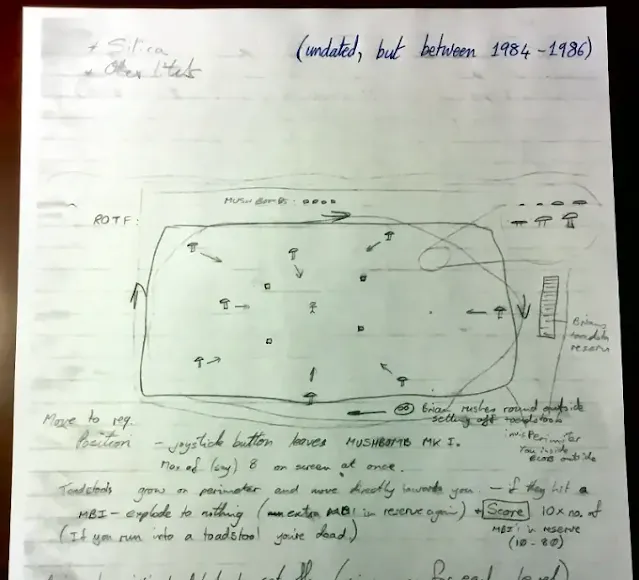 * Silica
(undated, but between 1984-1986)
*
MUSHBOMBS:
ROTF:
Brian's
toadstool
reserve
Move to req.
Position - joystick button leaves MUSHBOMB MK I.
Brian rushes round outside
setting off toadstools
Perimeter
You inside
outside
Max of (say) 8 on screen at once.
Toadstools grow on perimeter and move directly towards you - if they hit a
MBI - explode to nothing ( extra MBI in reserve again) + Score 10 x no. of
MBI's in reserve
(10-80)
(If you run into a toadstool you're dead.)
for each level)